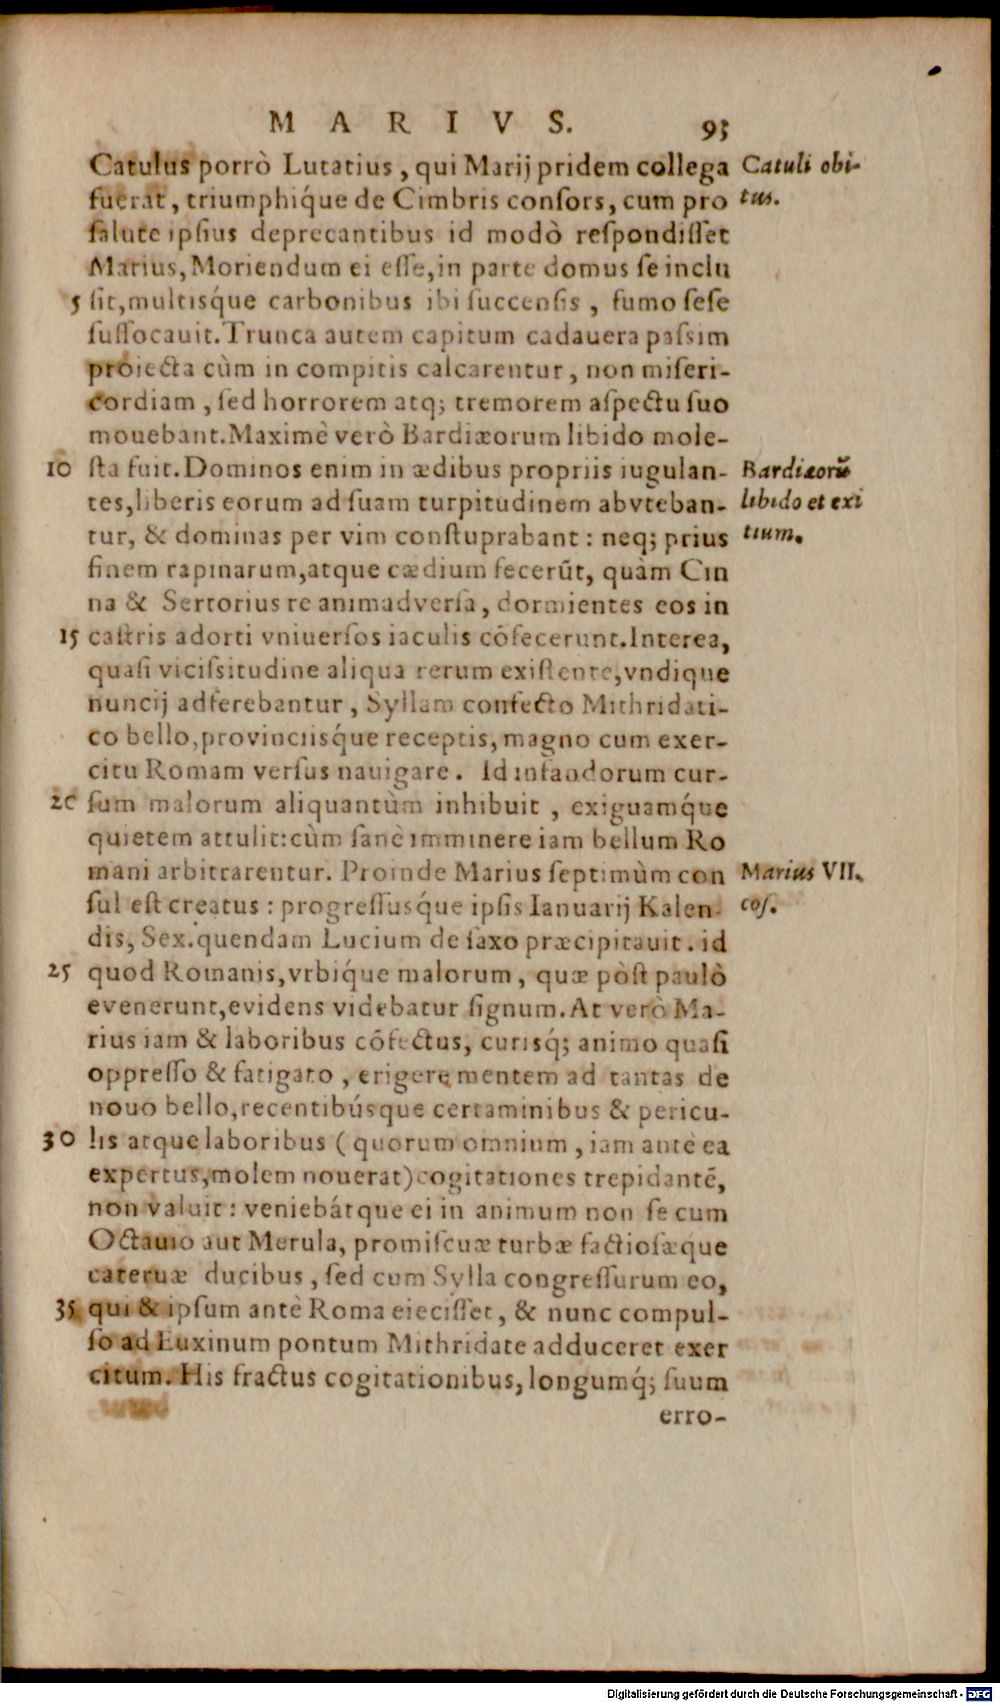 MARIVS. 93
Catulus porrò Lutatius, qui Marij pridem collega
Catuli obi-
fuerat, triumphiq́ue de Cimbris consors, cum pro
tus.
salute ipsius deprecantibus id modò respondisset
Marius, Moriendum ei esse, in parte domus se inclu
5 sit, multisq́ue carbonibus ibi succensis, fumo sese
suffocauit. Trunca autem capitum cadauera passim
proiecta cùm in compitis calcarentur, non miseri-
cordiam, sed horrorem atq; tremorem aspectu suo
mouebant. Maximè verò Bardiæorum libido mole-
10 sta fuit. Dominos enim in ædibus propriis iugulan-
Bardiæorũ
tes, liberis eorum ad suam turpitudinem abvteban-
libido et exi
tur, & dominas per vim constuprabant: neq; prius
tium.
finem rapinarum, atque cædium fecerũt, quàm Cin
na & Sertorius re animadversa, dormientes eos in
15 castris adorti vniuersos iaculis cõfecerunt. Interea,
quasi vicissitudine aliqua rerum existente, vndique
nuncij adferebantur, Syllam confecto Mithridati-
co bello, provinciisq́ue receptis, magno cum exer-
citu Romam versus nauigare. Id infandorum cur-
20 sum malorum aliquantùm inhibuit, exiguamq́ue
quietem attulit: cùm sanè imminere iam bellum Ro
mani arbitrarentur. Proinde Marius septimùm con
Marius VII.
sul est creatus: progressusq́ue ipsis Ianuarij Kalen-
cos.
dis, Sex. quendam Lucium de saxo præcipitauit. id
25 quod Romanis, vrbiq́ue malorum, quæ pòst paulò
evenerunt, evidens videbatur signum. At verò Ma-
rius iam & laboribus cõfectus, curisq́; animo quasi
oppresso & fatigato, erigere mentem ad tantas de
nouo bello, recentibúsque certaminibus & pericu-
30 lis atque laboribus (quorum omnium, iam antè ea
expertus, molem nouerat) cogitationes trepidantẽ,
non valuit: veniebátque ei in animum non se cum
Octauio aut Merula, promiscuæ turbæ factiosæque
cateruæ ducibus, sed cum Sylla congressurum eo,
35 qui & ipsum antè Roma eiecisset, & nunc compul-
so ad Euxinum pontum Mithridate adduceret exer
citum. His fractus cogitationibus, longumq́; suum
erro-
Digitalisierung gefördert durch die Deutsche Forschungsgemeinschaft - DFG